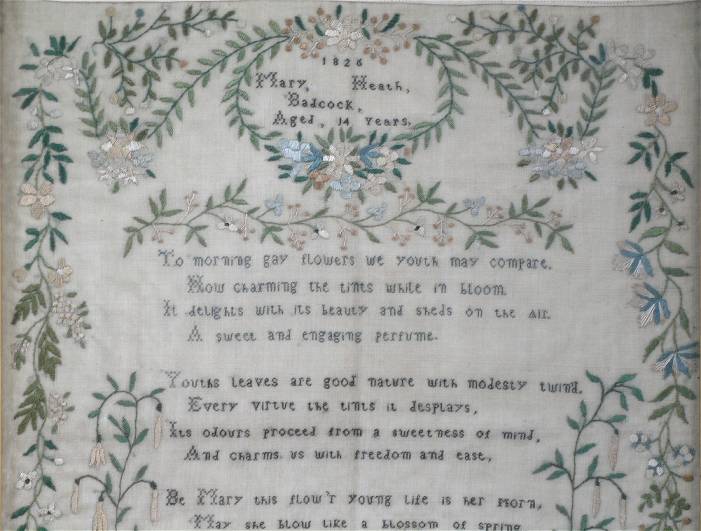 1826
Mary, Heath,
Badcock,
Aged, 14 Years,
To morning gay flowers we youth may compare,
How charming the tints while in bloom
It delights with its beauty and sheds on the air
A sweet and engaging perfume.
Youths leaves are good nature with modesty twin'd,
Every virtue the tints it desplays,
Its odours proceed from a sweetness of mind,
And charms us with freedom and ease,
Be Mary this flow'r young life is her Morn,
May she blow like a blossom of spring